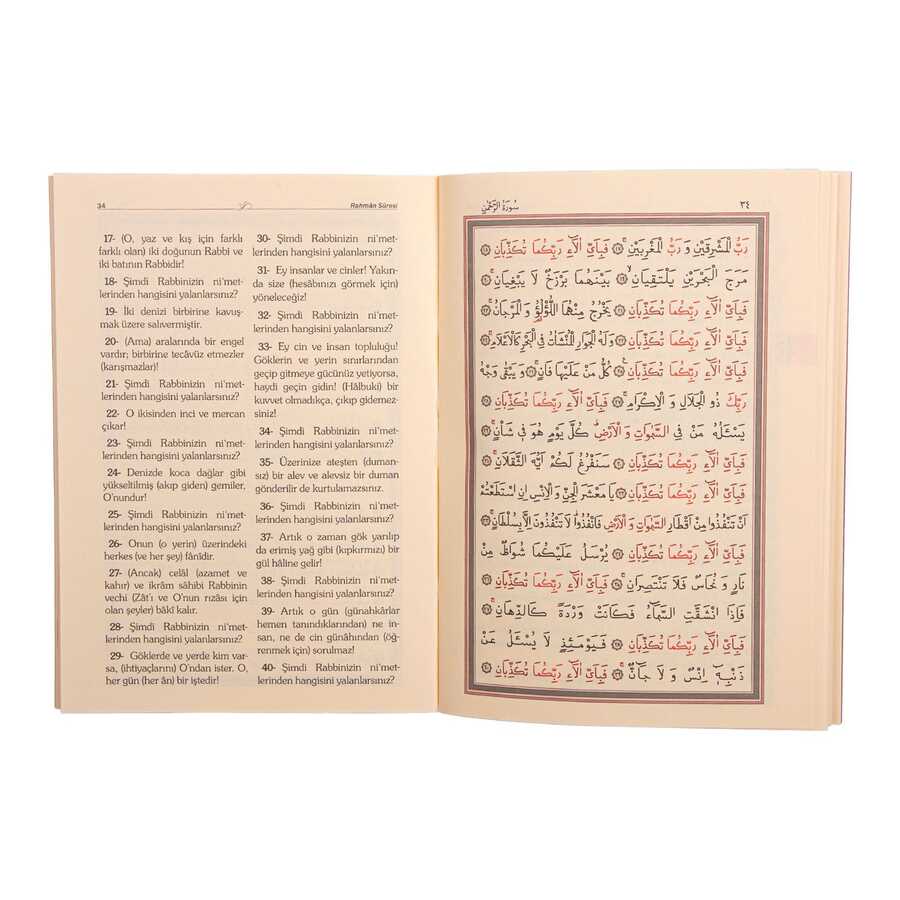 34
Rahmân Sûresi
17- (O, yaz ve kış için farklı
farklı olan) iki doğunun Rabbi ve
iki batının Rabbidir!
18- Şimdi Rabbinizin ni'met-
lerinden hangisini yalanlarsınız?
19- İki denizi birbirine kavuş-
mak üzere salıvermiştir.
20- (Ama) aralarında bir engel
vardır; birbirine tecâvüz etmezler
(karışmazlar)!
21- Şimdi Rabbinizin ni'met-
lerinden hangisini yalanlarsınız?
22- O ikisinden inci ve mercan
çıkar!
23- Şimdi Rabbinizin ni'met-
lerinden hangisini yalanlarsınız?
24- Denizde koca dağlar gibi
yükseltilmiş (akıp giden) gemiler,
O'nundur!
25- Şimdi Rabbinizin ni'met-
lerinden hangisini yalanlarsınız?
26- Onun (o yerin) üzerindeki
herkes (ve her şey) fânîdir.
27- (Ancak) celâl (azamet ve
kahır) ve ikrâm sâhibi Rabbinin
vechi (Zât'ı ve O'nun rızâsı için
olan şeyler) bâkî kalır.
28- Şimdi Rabbinizin ni'met-
lerinden hangisini yalanlarsınız?
29- Göklerde ve yerde kim var-
sa, (ihtiyaçlarını) O'ndan ister. O,
her gün (her ân) bir iştedir!
30- Şimdi Rabbinizin ni'met-
lerinden hangisini yalanlarsınız?
31- Ey insanlar ve cinler! Yakın-
da size (hesâbınızı görmek için)
yöneleceğiz!
32- Şimdi Rabbinizin ni'met-
lerinden hangisini yalanlarsınız?
33- Ey cin ve insan topluluğu!
Göklerin ve yerin sınırlarından
geçip gitmeye gücünüz yetiyorsa,
haydi geçin gidin! (Hâlbuki) bir
kuvvet olmadıkça, çıkıp gidemez-
siniz!
34- Şimdi Rabbinizin ni'met-
lerinden hangisini yalanlarsınız?
35- Üzerinize ateşten (duman-
sız) bir alev ve alevsiz bir duman
gönderilir de kurtulamazsınız.
36- Şimdi Rabbinizin ni'met-
lerinden hangisini yalanlarsınız?
37- Artık o zaman gök yarılıp
da erimiş yağ gibi (kıpkırmızı) bir
gül hâline gelir!
38- Şimdi Rabbinizin ni'met-
lerinden hangisini yalanlarsınız?
39- Artık o gün (günahkârlar
hemen tanındıklarından) ne in-
san, ne de cin günâhından (öğ-
renmek için) sorulmaz!
40- Şimdi Rabbinizin ni'met-
lerinden hangisini yalanlarsınız?
٣٤
سُورَةُ الرَّحْمٰنِ
رَبُّ الْمَشْرِقَيْنِ وَ رَبُّ الْمَغْرِبَيْنِۚ ﴿١٧﴾ فَبِاَيِّ اٰلَٓاءِ رَبِّكُمَا تُكَذِّبَانِ ﴿١٨﴾
مَرَجَ الْبَحْرَيْنِ يَلْتَقِيَانِۙ ﴿١٩﴾ بَيْنَهُمَا بَرْزَخٌ لَا يَبْغِيَانِۚ ﴿٢٠﴾
فَبِاَيِّ اٰلَٓاءِ رَبِّكُمَا تُكَذِّبَانِ ﴿٢١﴾ يَخْرُجُ مِنْهُمَا اللُّؤْلُؤُ وَ الْمَرْجَانُۚ ﴿٢٢﴾
فَبِاَيِّ اٰلَٓاءِ رَبِّكُمَا تُكَذِّبَانِ ﴿٢٣﴾ وَلَهُ الْجَوَارِ الْمُنْشَاٰتُ فِي الْبَحْرِ كَالْاَعْلَامِۚ ﴿٢٤﴾
فَبِاَيِّ اٰلَٓاءِ رَبِّكُمَا تُكَذِّبَانِ ﴿٢٥﴾ كُلُّ مَنْ عَلَيْهَا فَانٍۚ ﴿٢٦﴾ وَيَبْقٰى وَجْهُ
رَبِّكَ ذُو الْجَلَالِ وَ الْاِكْرَامِۚ ﴿٢٧﴾ فَبِاَيِّ اٰلَٓاءِ رَبِّكُمَا تُكَذِّبَانِ ﴿٢٨﴾
يَسْـَٔلُهُ مَنْ فِي السَّمٰوَاتِ وَ الْاَرْضِۜ كُلَّ يَوْمٍ هُوَ فِي شَأْنٍۚ ﴿٢٩﴾
فَبِاَيِّ اٰلَٓاءِ رَبِّكُمَا تُكَذِّبَانِ ﴿٣٠﴾ سَنَفْرُغُ لَكُمْ اَيُّهَ الثَّقَلَانِۚ ﴿٣١﴾
فَبِاَيِّ اٰلَٓاءِ رَبِّكُمَا تُكَذِّبَانِ ﴿٣٢﴾ يَا مَعْشَرَ الْجِنِّ وَ الْاِنْسِ اِنِ اسْتَطَعْتُمْ
اَنْ تَنْفُذُوا مِنْ اَقْطَارِ السَّمٰوَاتِ وَ الْاَرْضِ فَانْفُذُواۜ لَا تَنْفُذُونَ اِلَّا بِسُلْطَانٍۚ ﴿٣٣﴾
فَبِاَيِّ اٰلَٓاءِ رَبِّكُمَا تُكَذِّبَانِ ﴿٣٤﴾ يُرْسَلُ عَلَيْكُمَا شُوَاظٌ مِنْ
نَارٍ وَ نُحَاسٌ فَلَا تَنْتَصِرَانِۚ ﴿٣٥﴾ فَبِاَيِّ اٰلَٓاءِ رَبِّكُمَا تُكَذِّبَانِ ﴿٣٦﴾
فَاِذَا انْشَقَّتِ السَّمَٓاءُ فَكَانَتْ وَرْدَةً كَالدِّهَانِۚ ﴿٣٧﴾
فَبِاَيِّ اٰلَٓاءِ رَبِّكُمَا تُكَذِّبَانِ ﴿٣٨﴾ فَيَوْمَئِذٍ لَا يُسْـَٔلُ عَنْ
ذَنْبِهٖٓ اِنْسٌ وَ لَا جَٓانٌّۚ ﴿٣٩﴾ فَبِاَيِّ اٰلَٓاءِ رَبِّكُمَا تُكَذِّبَانِ ﴿٤٠﴾